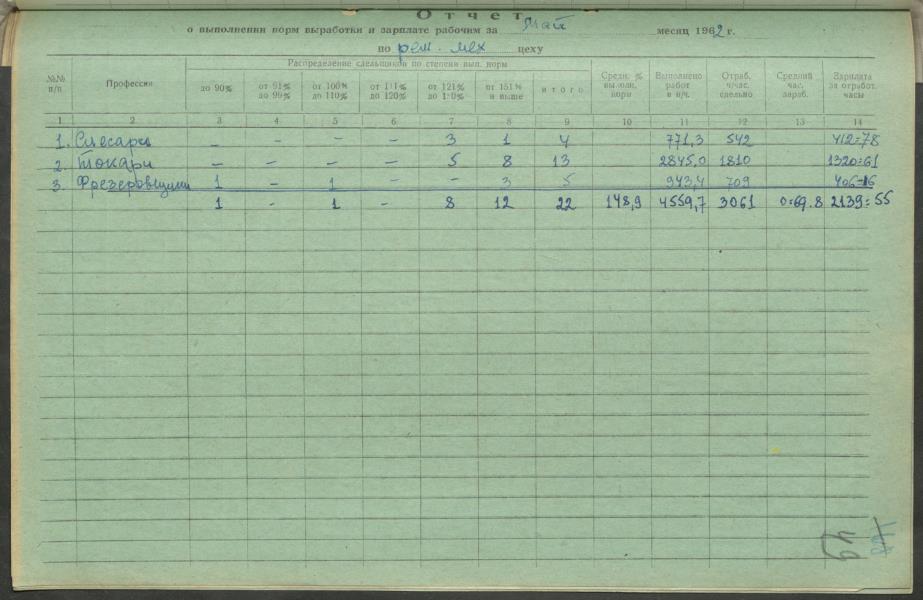 Отчет
о выполнении норм выработки и зарплате рабочим за Май месяц 1962 г.
по рем. мех цеху
Распределение сдельщиков по степени вып. норм
№№ п/п Профессия до 90% от 91% до 99% от 100% до 110% от 111% до 120% от 121% до 150% от 151% и выше итого Средн. % выполн. норм Выполнено работ в н/ч. Отраб. ч/час. сдельно Средний час. зараб. Зарплата за отработ. часы
1 2 3 4 5 6 7 8 9 10 11 12 13 14
1. Слесаря – – – – 3 1 4 771,3 542 412=78
2. Токари – – – – 5 8 13 2845,0 1810 1320=61
3. Фрезеровщики 1 – 1 – – 3 5 943,4 709 406=16
1 - 1 - 8 12 22 148,9 4559,7 3061 0=69.8 2139=55
49